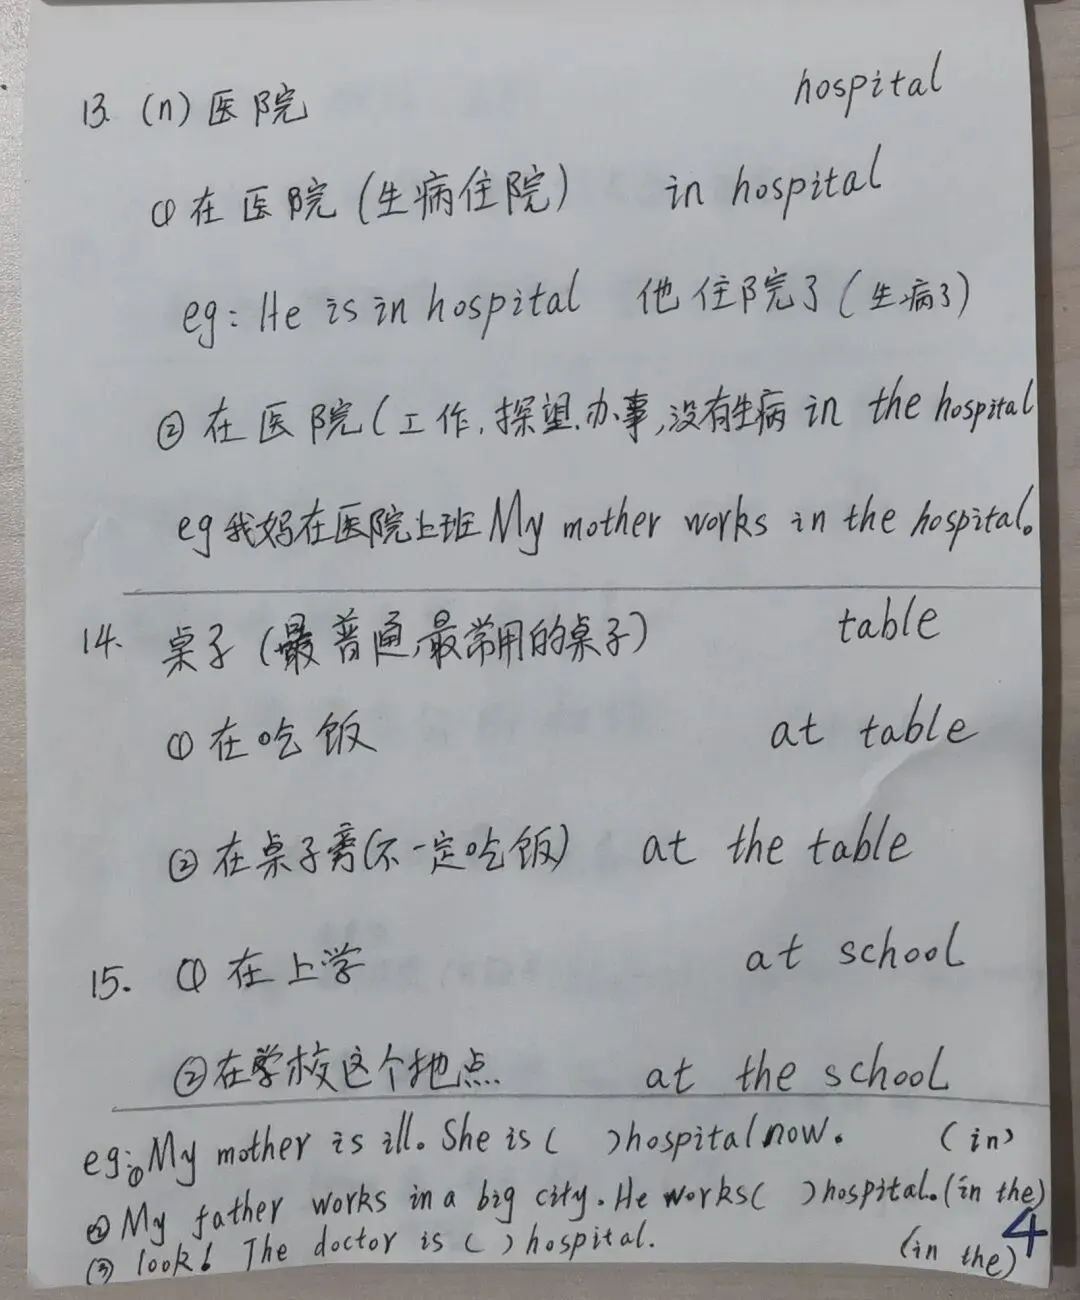 13. (n) 医院 hospital
① 在医院 (生病住院) in hospital
eg: He is in hospital 他住院了 (生病了)
② 在医院 (工作, 探望, 办事, 没有生病 in the hospital
eg 我妈在医院上班 My mother works in the hospital。
14. 桌子 (最普通, 最常用的桌子) table
① 在吃饭 at table
② 在桌子旁 (不一定吃饭) at the table
15. ① 在上学 at school
② 在学校这个地点. at the school
eg: ① My mother is ill。 She is ( ) hospital now. (in)
② My father works in a big city. He works ( ) hospital. (in the)
③ look! The doctor is ( ) hospital. (in the)
4